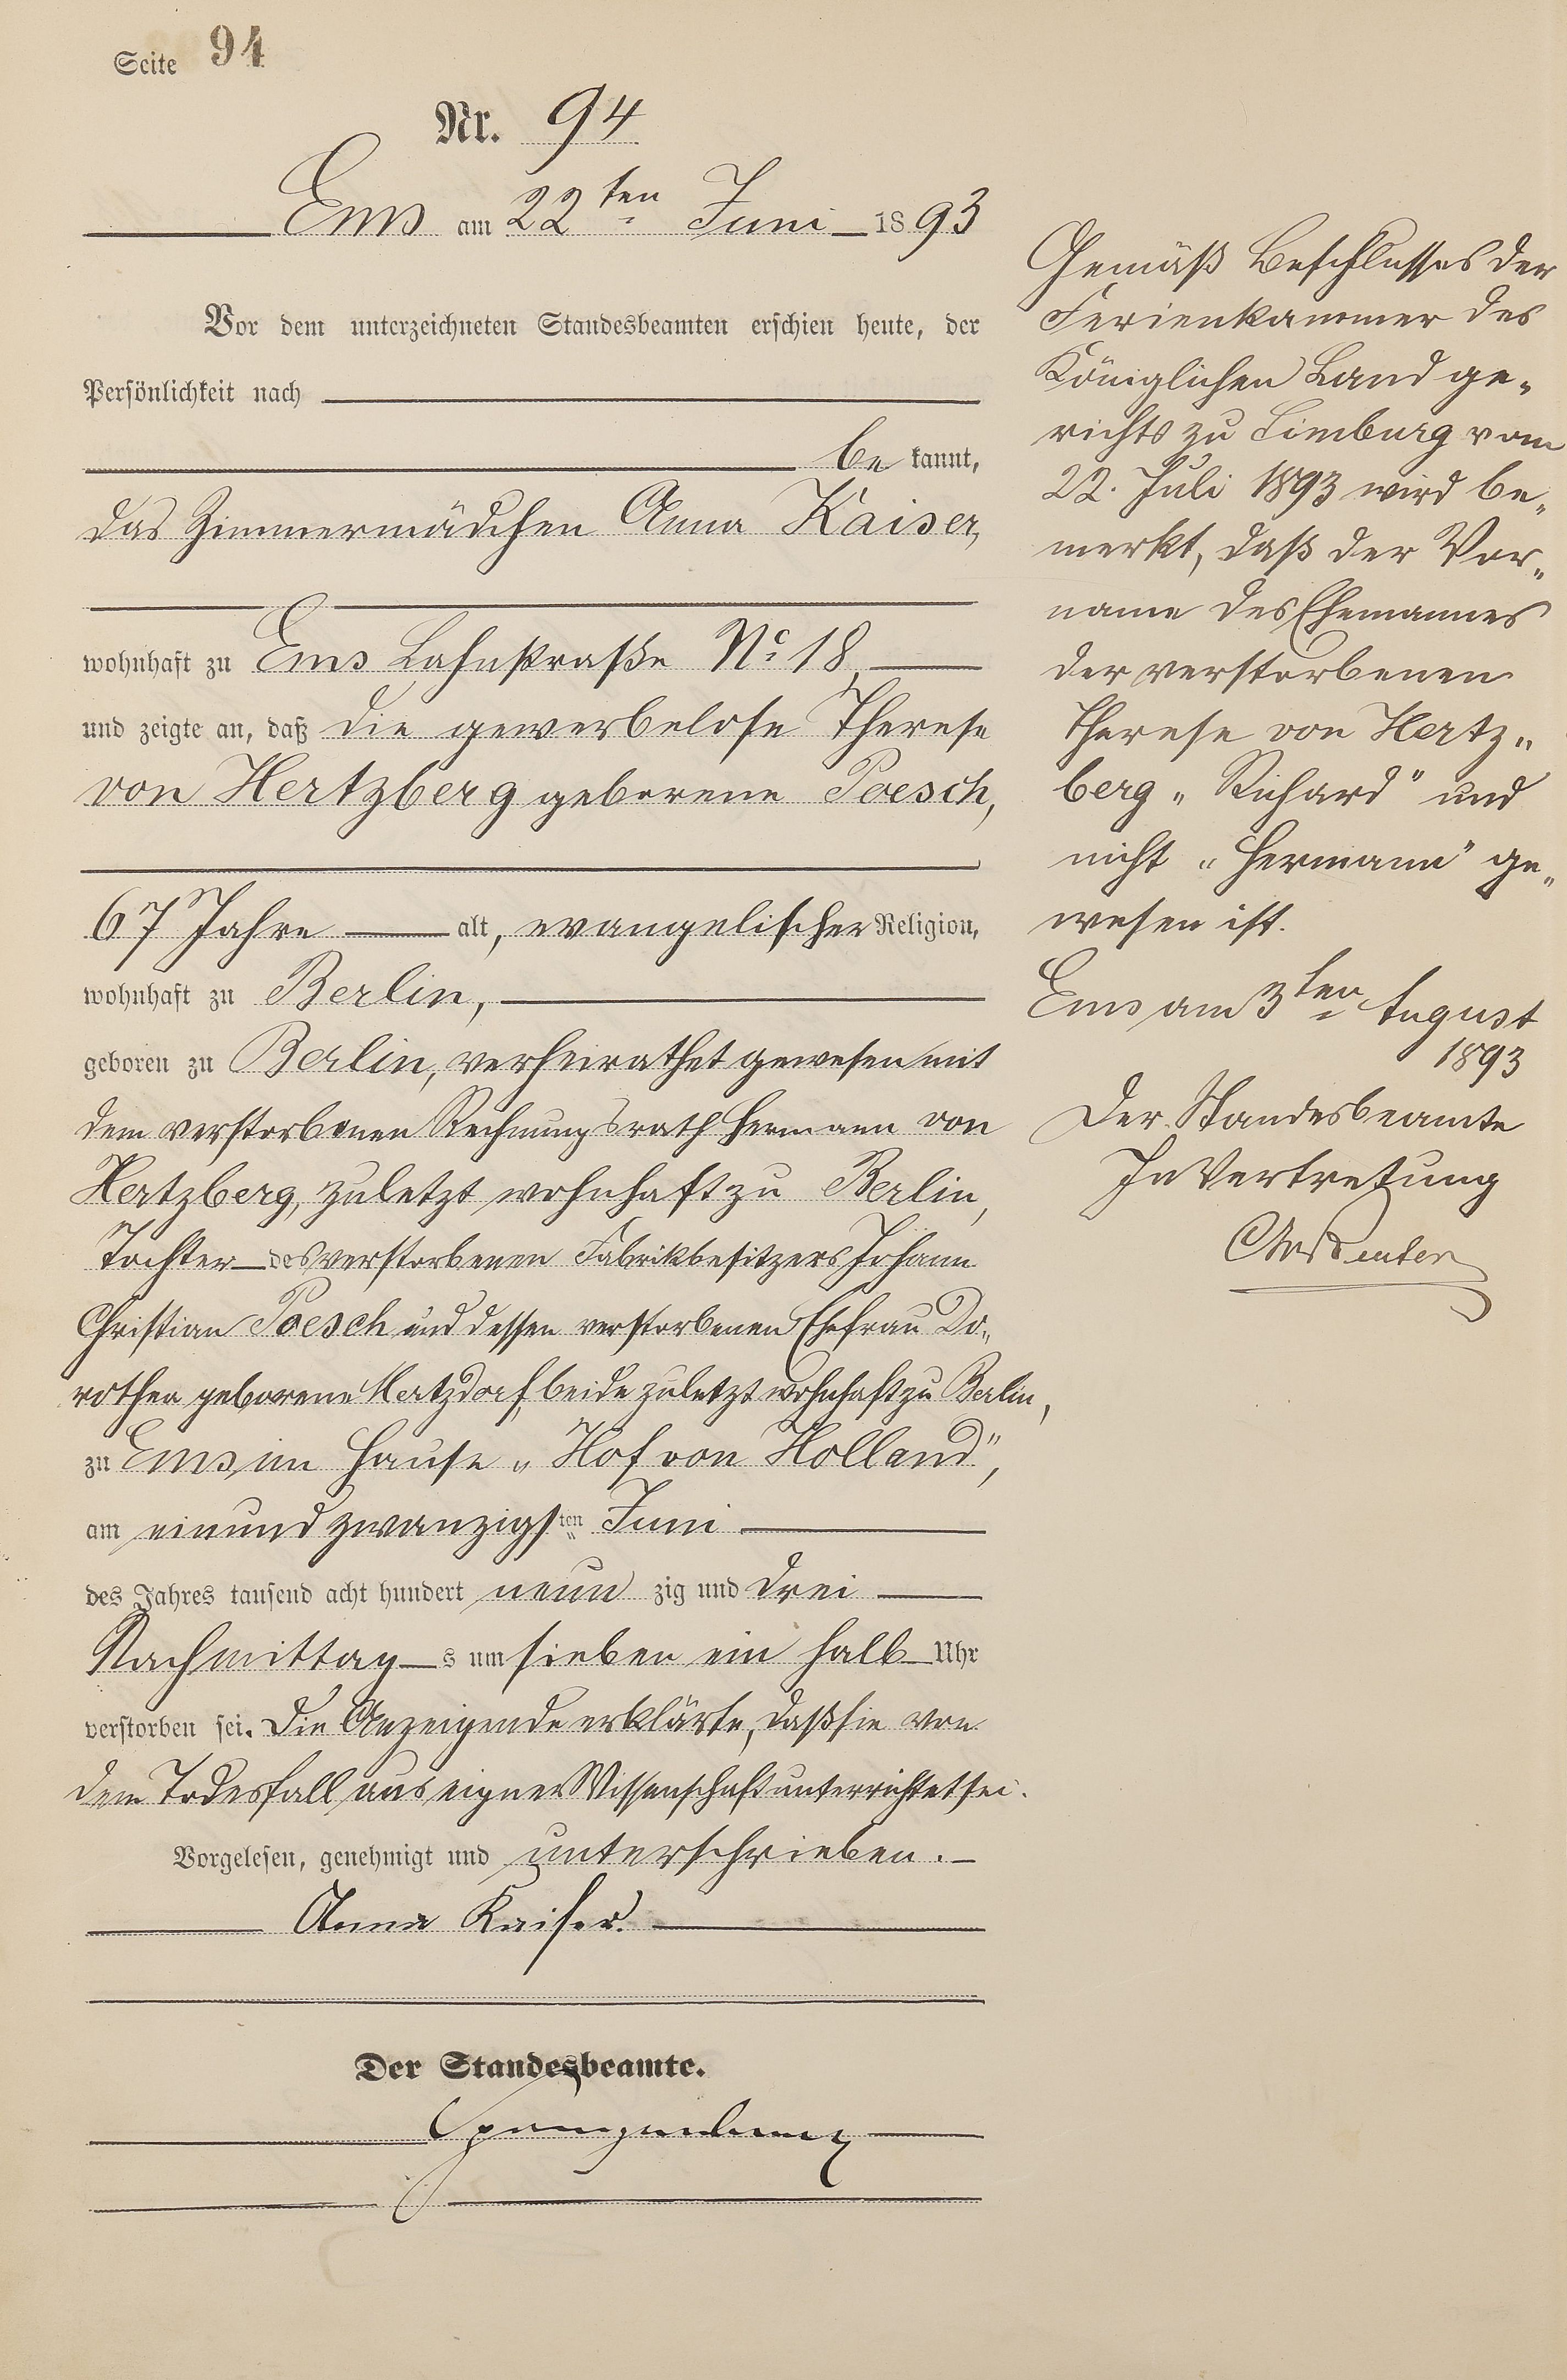 Seite 94
Nr. 94
Ems am 22ten Juni 1893
Vor dem unterzeichneten Standesbeamten erschien heute, der
Persönlichkeit nach
be kannt,
das Zimmermädchen Anna Kaiser,
wohnhaft zu Ems Lahnstraße No 18,
und zeigte an, daß die gewerbelose Therese
von Hertzberg geborene Poesch,
67 Jahre alt, evangelischer Religion,
wohnhaft zu Berlin,
geboren zu Berlin, verheirathet gewesen mit
dem verstorbenen Rechnungsrath Hermann von
Hertzberg, zuletzt wohnhaft zu Berlin,
Tochter des verstorbenen Fabrikbesitzers Johann
Christian Poesch und dessen verstorbenen Ehefrau Do„
rothea geborene Hertzdorf, beide zuletzt wohnhaft zu Berlin,
zu Ems im Hause „Hof von Holland",
am einundzwanzigsten Juni
des Jahres tausend acht hundert neun zig und drei
Nachmittag s um sieben ein halb Uhr
verstorben sei. Die Anzeigende erklärte, daß sie von
dem Todesfall aus eigner Wissenschaft unterrichtet sei.
Vorgelesen, genehmigt und unterschrieben.
Anna Kaiser.
Der Standesbeamte.
Gemäß Beschlusses der
Ferienkammer des
Königlichen Landge„
richts zu Limburg vom
22. Juli 1893 wird be„
merkt, daß der Vor„
name des Ehemannes
der verstorbenen
Therese von Hertz„
berg „Richard" und
nicht „Hermann" ge„
wesen ist.
Ems am 3ten August
1893
Der Standesbeamte
In Vertretung